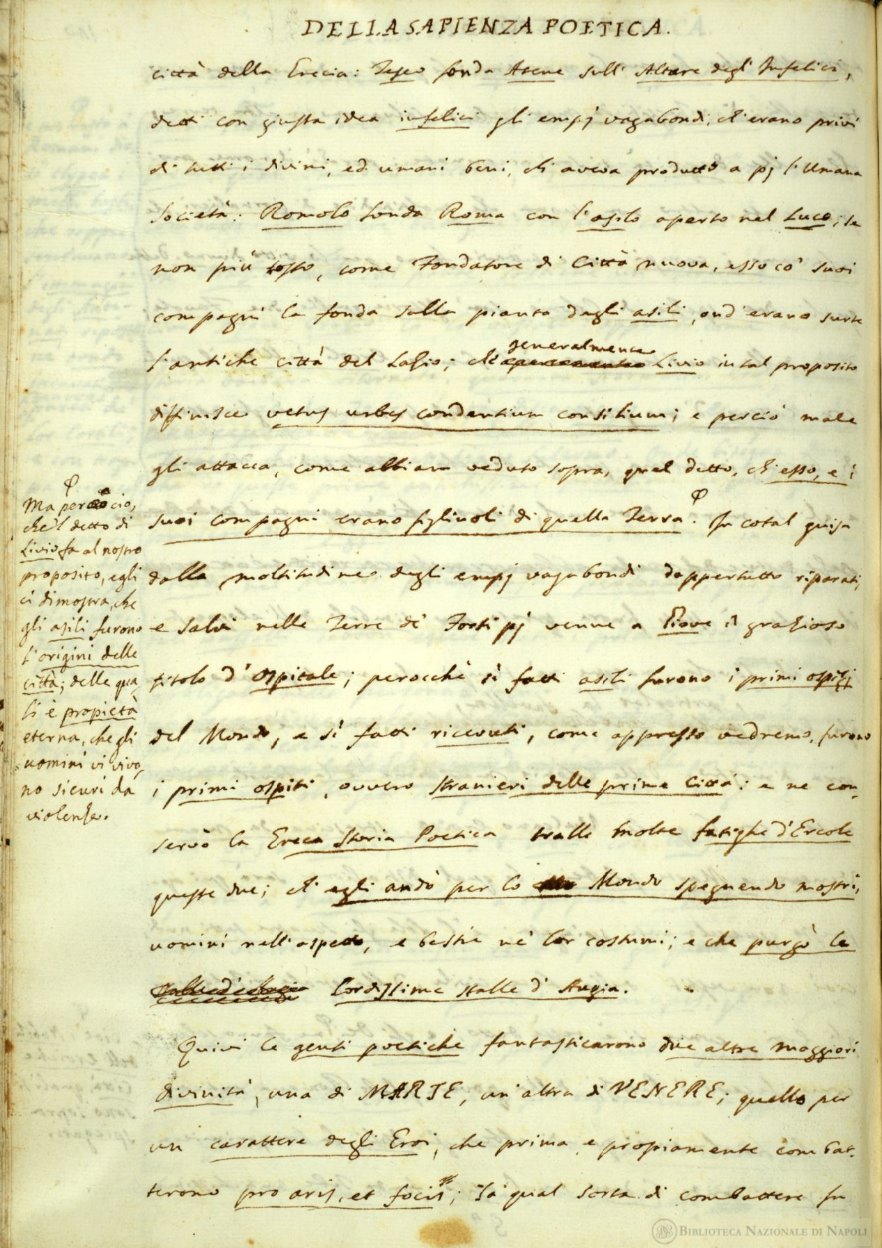 DELLA SAPIENZA POETICA.
città della Grecia: Teseo fonda Atene sull' Altare degl' Infelici,
detti con giusta idea infelici gli empj vagabondi, ch' erano privi
di tutti i divini, ed umani beni, ch' aveva produtto a pj l' Umana
Società: Romolo fonda Roma con l' asilo aperto nel Luco; se
non più tosto, come Fondatore di Città nuova, esso co' suoi
compagni la fonda sulla pianta degli asili, ond' erano surte
l' antiche città del Lazio; che generalmente Livio in tal proposito
diffinisce vetus urbes condentium consilium; e perciò male
gli attacca, come abbiam veduto sopra, quel detto, ch' esso, e i
suoi compagni erano figliuoli di quella Terra. In cotal guisa
dalla moltitudine degli empj vagabondi dappertutto riparati,
e salvi nelle Terre de' Forti pj venne a Giove il grazioso
titolo d' ospitale; perocchè sì fatti asili furono i primi ospizj
del Mondo, e sì fatti ricevuti, come appresso vedremo, furono
i primi ospiti, ovvero stranieri delle prime città: e ne con-
servò la Greca Storia Poetica tralle molte fatighe d' Ercole
queste due; ch' egli andò per lo Mondo spegnendo mostri,
uomini nell' aspetto, e bestie ne' lor costumi; e che purgò le
lordissime stalle d' Augia.
Quivi le genti poetiche fantasticarono due altre maggiori
divinità, una di MARTE, un' altra di VENERE; quello per
un carattere degli Eroi, che prima, e propiamente combat-
terono pro aris, et focis; la qual sorta di combattere fu
Ma perciò,
che 'l detto di
Livio fa al nostro
proposito, egli
ci dimostra, che
gli asili furono
l' origini delle
città; delle qua-
li è propietà
eterna, che gli
uomini vi vivo-
no sicuri da
violenza.
BIBLIOTECA NAZIONALE DI NAPOLI